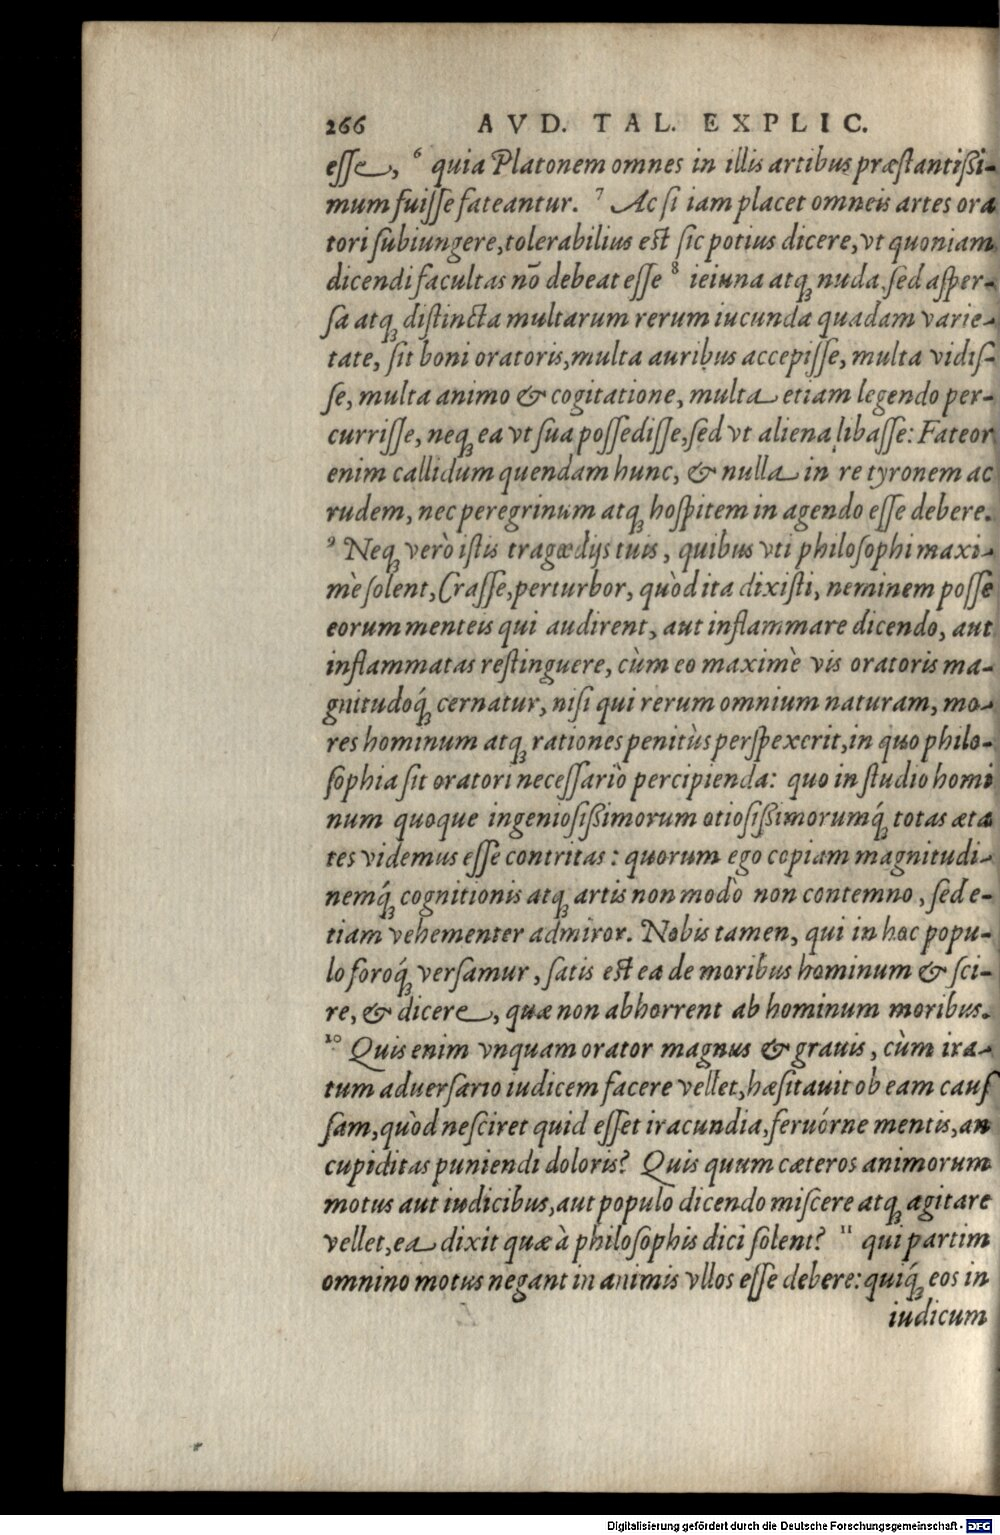 266 AVD. TAL. EXPLIC.
esse, ⁶ quia Platonem omnes in illis artibus præstantißi-
mum fuisse fateantur. ⁷ Ac si iam placet omneis artes ora
tori subiungere, tolerabilius est sic potius dicere, vt quoniam
dicendi facultas nō debeat esse ⁸ ieiuna atq; nuda, sed asper-
sa atq; distincta multarum rerum iucunda quadam varie-
tate, sit boni oratoris, multa auribus accepisse, multa vidis-
se, multa animo & cogitatione, multa etiam legendo per-
currisse, neq; ea vt sua possedisse, sed vt aliena libasse: Fateor
enim callidum quendam hunc, & nulla in re tyronem ac
rudem, nec peregrinum atq; hospitem in agendo esse debere.
⁹ Neq; verò istis tragœdijs tuis, quibus vti philosophi maxi-
mè solent, Crasse, perturbor, quòd ita dixisti, neminem posse
eorum menteis qui audirent, aut inflammare dicendo, aut
inflammatas restinguere, cùm eo maximè vis oratoris ma-
gnitudoq́; cernatur, nisi qui rerum omnium naturam, mo-
res hominum atq; rationes penitùs perspexerit, in quo philo-
sophia sit oratori necessariò percipienda: quo in studio homi
num quoque ingeniosißimorum otiosißimorumq́; totas æta
tes videmus esse contritas: quorum ego copiam magnitudi-
nemq́; cognitionis atq; artis non modò non contemno, sed e-
tiam vehementer admiror. Nobis tamen, qui in hoc popu-
lo foroq́; versamur, satis est ea de moribus hominum & sci-
re, & dicere, quæ non abhorrent ab hominum moribus.
¹⁰ Quis enim vnquam orator magnus & grauis, cùm ira-
tum aduersario iudicem facere vellet, hæsitauit ob eam caus
sam, quòd nesciret quid esset iracundia, feruórne mentis, an
cupiditas puniendi doloris? Quis quum cæteros animorum
motus aut iudicibus, aut populo dicendo miscere atq; agitare
vellet, ea dixit quæ à philosophis dici solent? ¹¹ qui partim
omnino motus negant in animis vllos esse debere: quiq́; eos in
iudicum
Digitalisierung gefördert durch die Deutsche Forschungsgemeinschaft - DFG